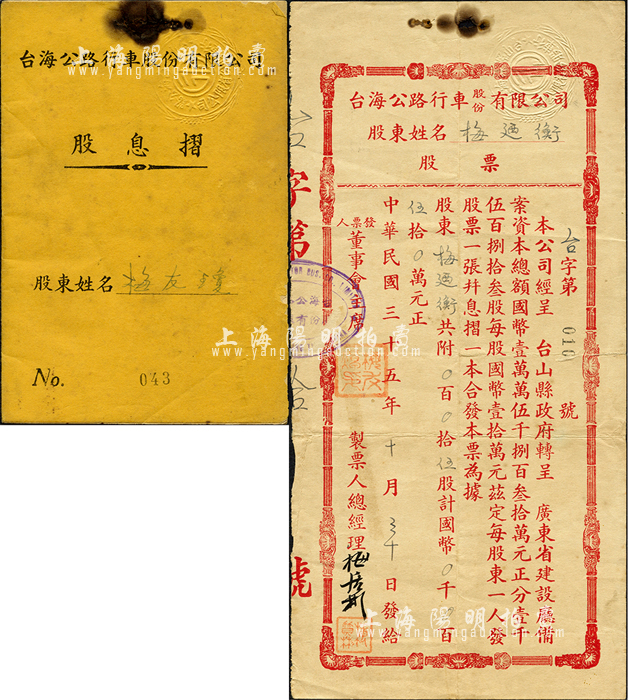 台海公路行車股份有限公司
股息摺
股東姓名 梅友瓊
No. 043
上海陽明拍賣
www.yangmingauction.com
台海公路行車股份有限公司
股東姓名 梅迺衡
股票
台字第010號
本公司經呈 台山縣政府轉呈 廣東省建設廳備
案資本總額國幣壹萬萬伍千捌百叁拾萬元正分壹千
伍百捌拾叁股每股國幣壹拾萬元茲定每股東一人發
股票一張幷息摺一本合發本票為據
股東梅迺衡共附0百0拾伍股計國幣0千0百
伍拾0萬元正
中華民國三十五年十月三十日發給
發票人董事會主席
製票人總經理
字第
號
上海陽明拍賣
www.yangmingauction.com
上海陽明拍賣
www.yangmingauction.com